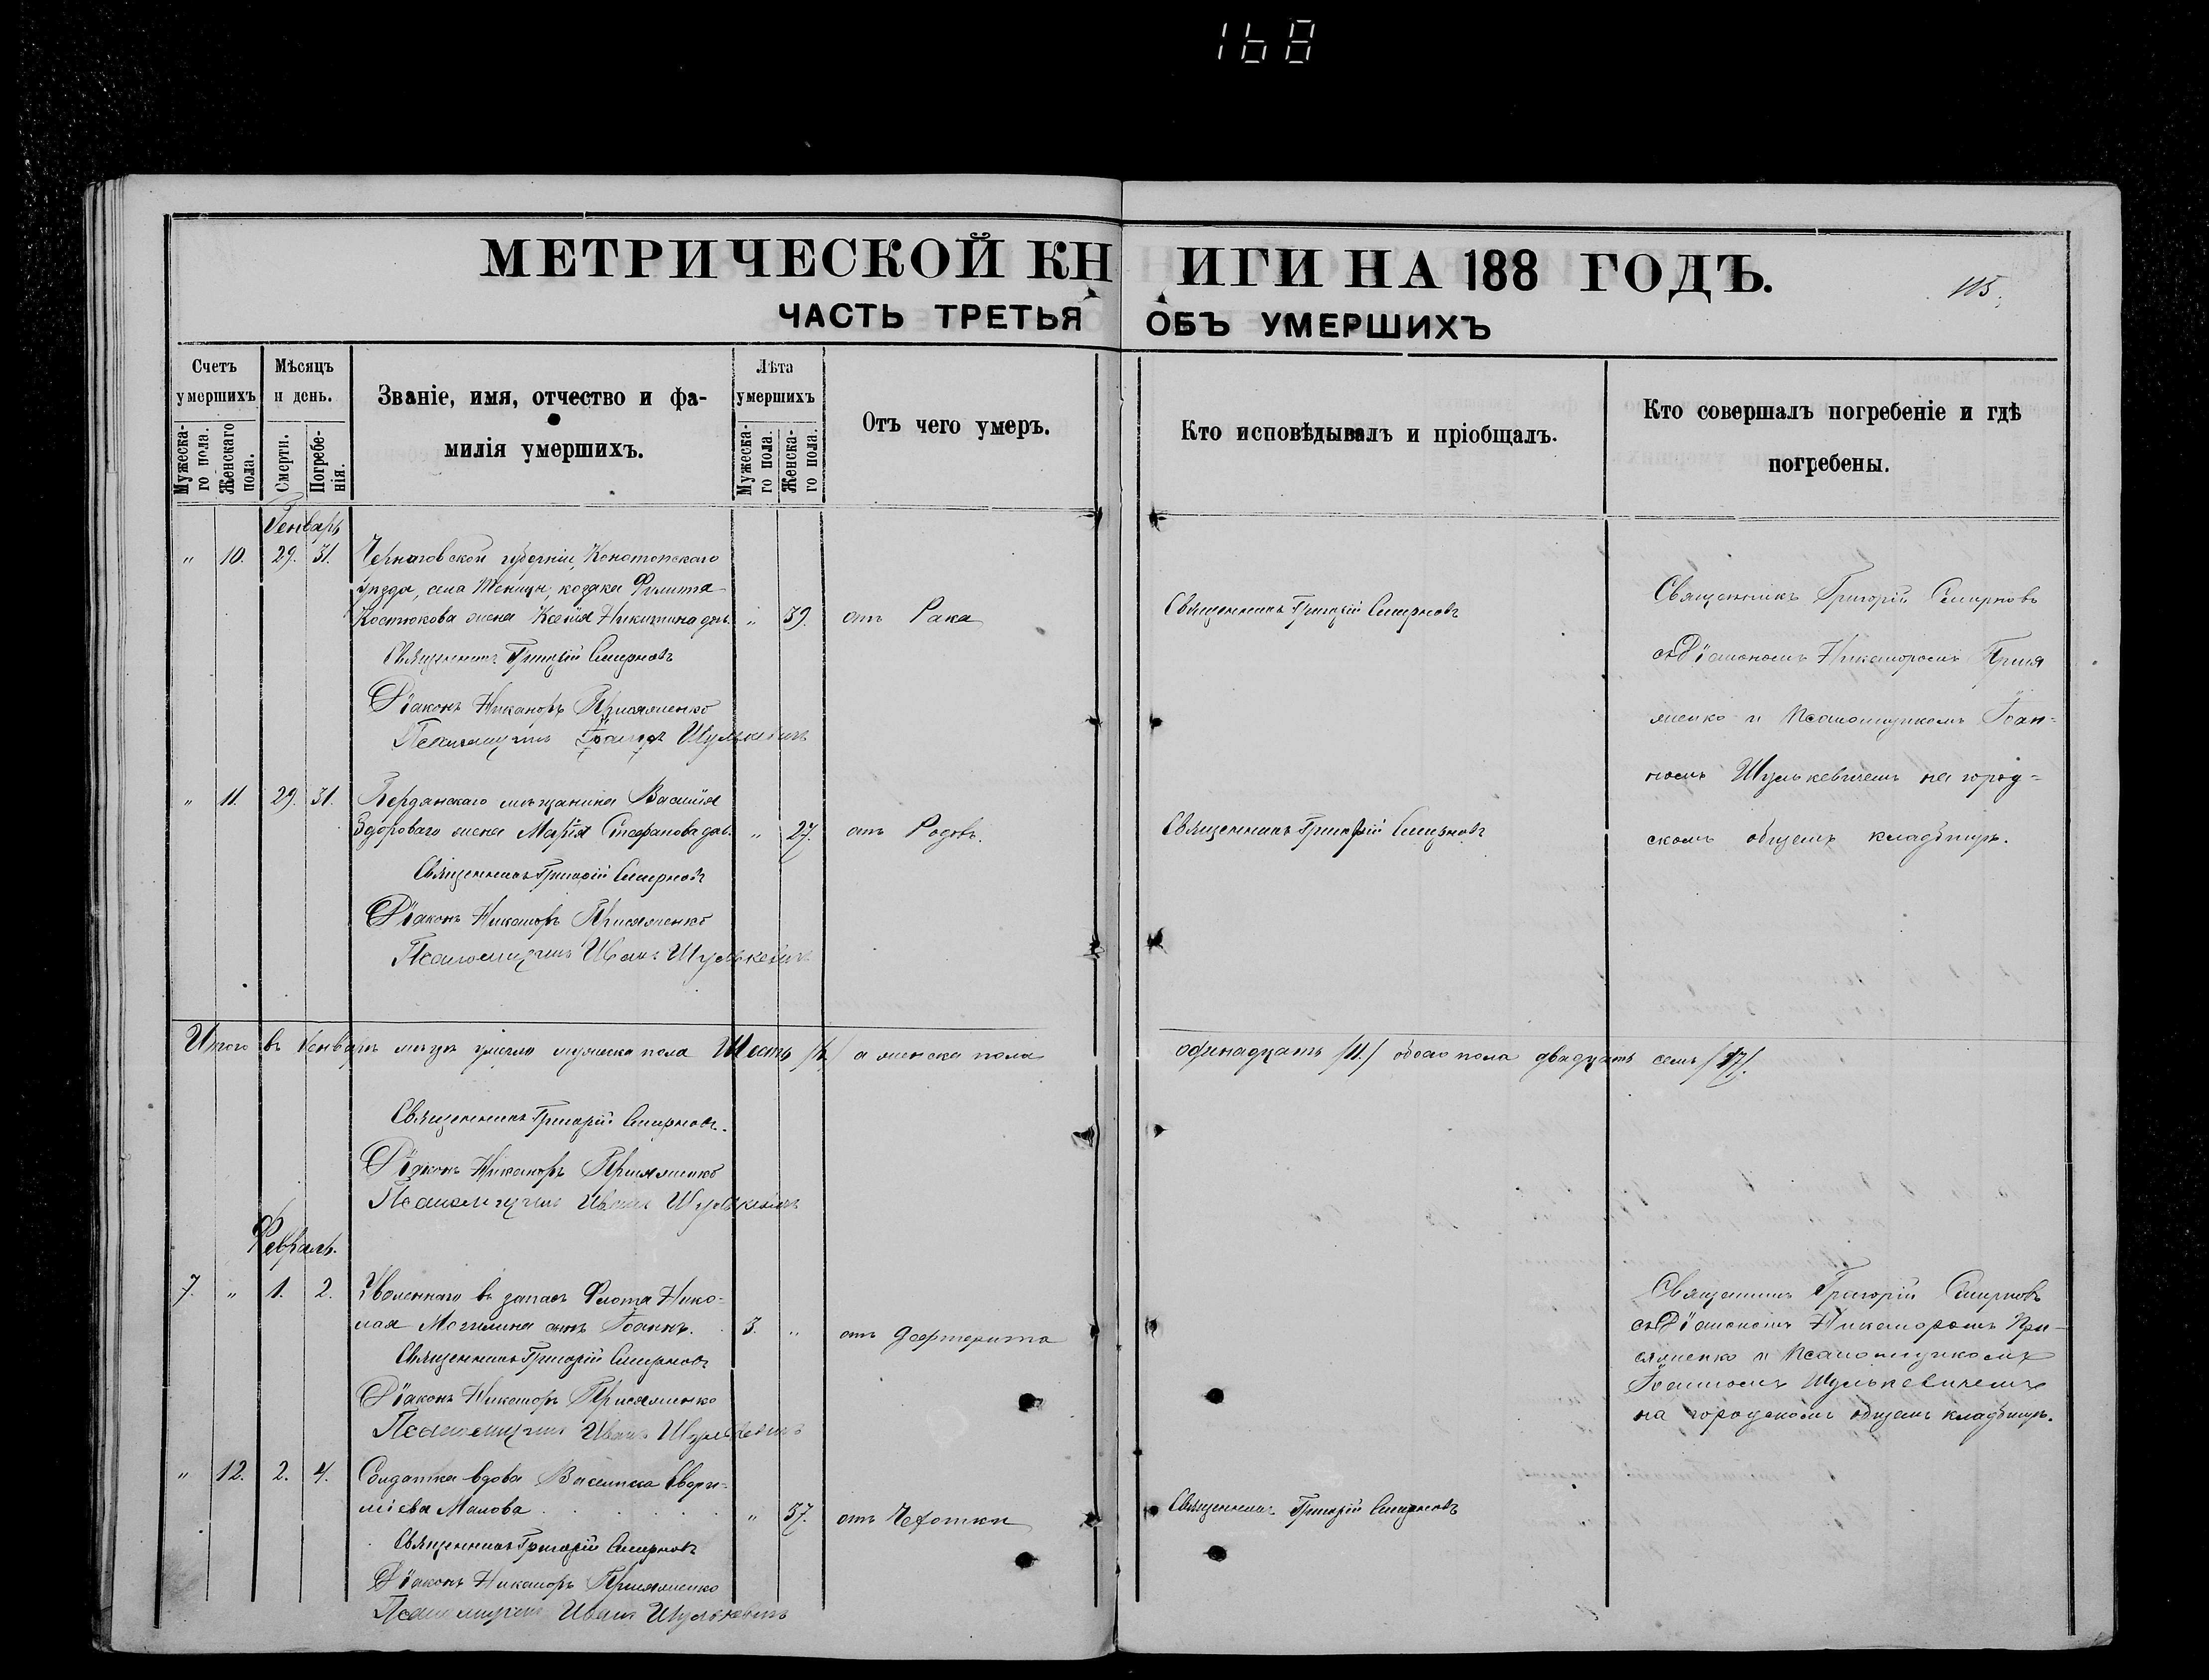 168
МЕТРИЧЕСКОЙ КНИГИ НА 188 ГОДЪ.
115.
ЧАСТЬ ТРЕТЬЯ ОБЪ УМЕРШИХЪ
Счетъ умершихъ
Мѣсяцъ и день.
Званіе, имя, отчество и фамилія умершихъ.
Лѣта умершихъ
Отъ чего умеръ.
Кто исповѣдывалъ и пріобщалъ.
Кто совершалъ погребеніе и гдѣ погребены.
Мужескаго пола.
Женскаго пола.
Смерти.
Погребенія.
Мужескаго пола.
Женскаго пола.
Генварь
" 10. 29. 31. Черниговской губерніи, Конотопскаго
уѣзда, села козака Филиппа
Костюкова жена Ксенія Никитина " 39. отъ Рака Священникъ Григорій Смирновъ
Священникъ Григорій Смирновъ
Діаконъ Никаноръ Присяженко
Псаломщикъ Шулькевичъ
Священникъ Григорій Смирновъ
съ Діакономъ Никаноромъ Прися
женко и Псаломщикомъ Іоан-
номъ Шулькевичемъ на город-
скомъ общемъ кладбищѣ.
" 11. 29. 31. Бердянскаго мѣщанина Василія
Здороваго жена Марія Стефанова " 27. отъ Родовъ. Священникъ Григорій Смирновъ
Священникъ Григорій Смирновъ
Діаконъ Никаноръ Присяженко
Псаломщикъ Иванъ Шулькевичъ
Итого въ Генварѣ м-цѣ умерло мужеска пола Шесть /6/ а женска пола одинадцать /11./ обоего пола двадцать семь /17/.
Священникъ Григорій Смирновъ.
Діаконъ Никаноръ Присяженко
Псаломщикъ Иванъ Шулькевичъ
Февраль.
7. " 1. 2. Уволеннаго въ запасъ Флота Нико-
лая Могилина сынъ Іоаннъ. 3. " отъ Дефтерита
Священникъ Григорій Смирновъ
Діаконъ Никаноръ Присяженко
Псаломщикъ Иванъ Шулькевичъ
Священникъ Григорій Смирновъ
съ Діакономъ Никаноромъ При-
сяженко и Псаломщикомъ
Іоанномъ Шулькевичемъ
на городскомъ общемъ кладбищѣ.
" 12. 2. 4. Солдатка вдова Василиса
Малова " 57. отъ Чехотки Священникъ Григорій Смирновъ
Священникъ Григорій Смирновъ
Діаконъ Никаноръ Присяженко
Псаломщикъ Иванъ Шулькевичъ